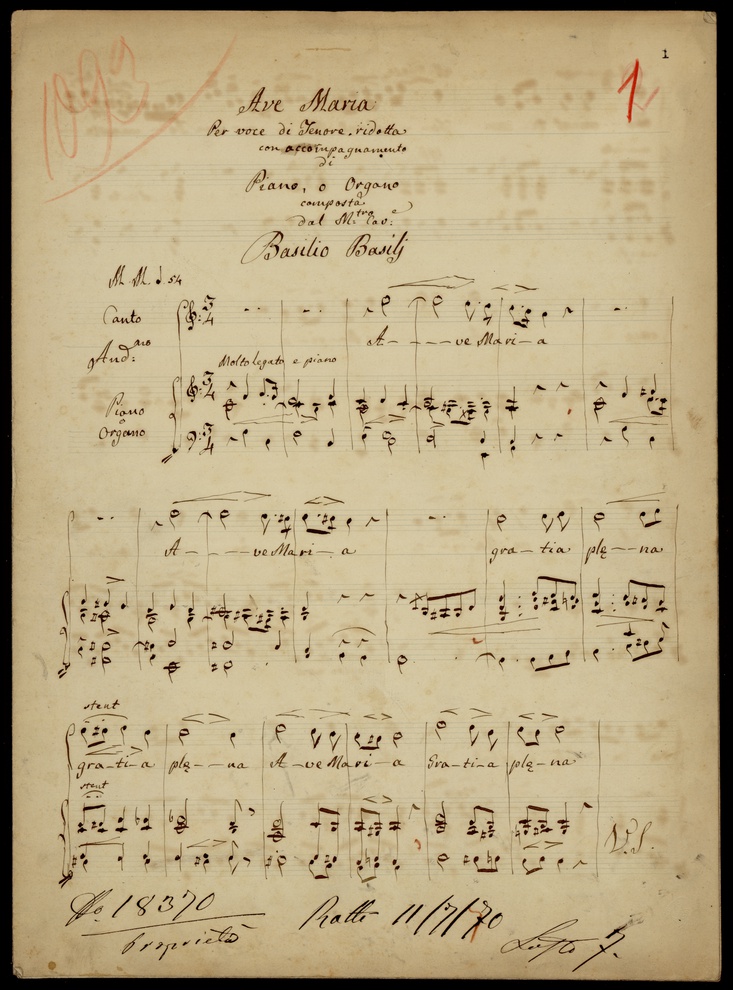 1
1093
1
Ave Maria
Per voce di Tenore. ridotta
con accompagnamento
di
Piano, o Organo
composta
dal M.tro Cav:e
Basilio Basilj
M. M. 54
Canto
And:no
Molto legato e piano
Piano
o
Organo
A - - - - ve Mari - a
A - - - - ve Mari - a
gra - tia ple - - na
stent
gra - ti - a ple - - na A - ve Mari - a Gra - ti - a ple - na
stent
V.S.
No 18370
proprietà
11/7/70